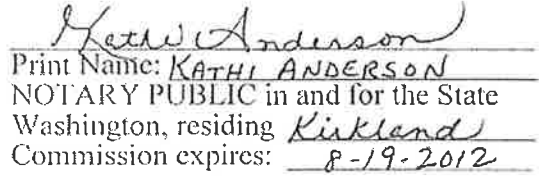 Kathi Anderson
Print Name: KATHI ANDERSON
NOTARY PUBLIC in and for the State
Washington, residing Kirkland
Commission expires: 8-19-2012